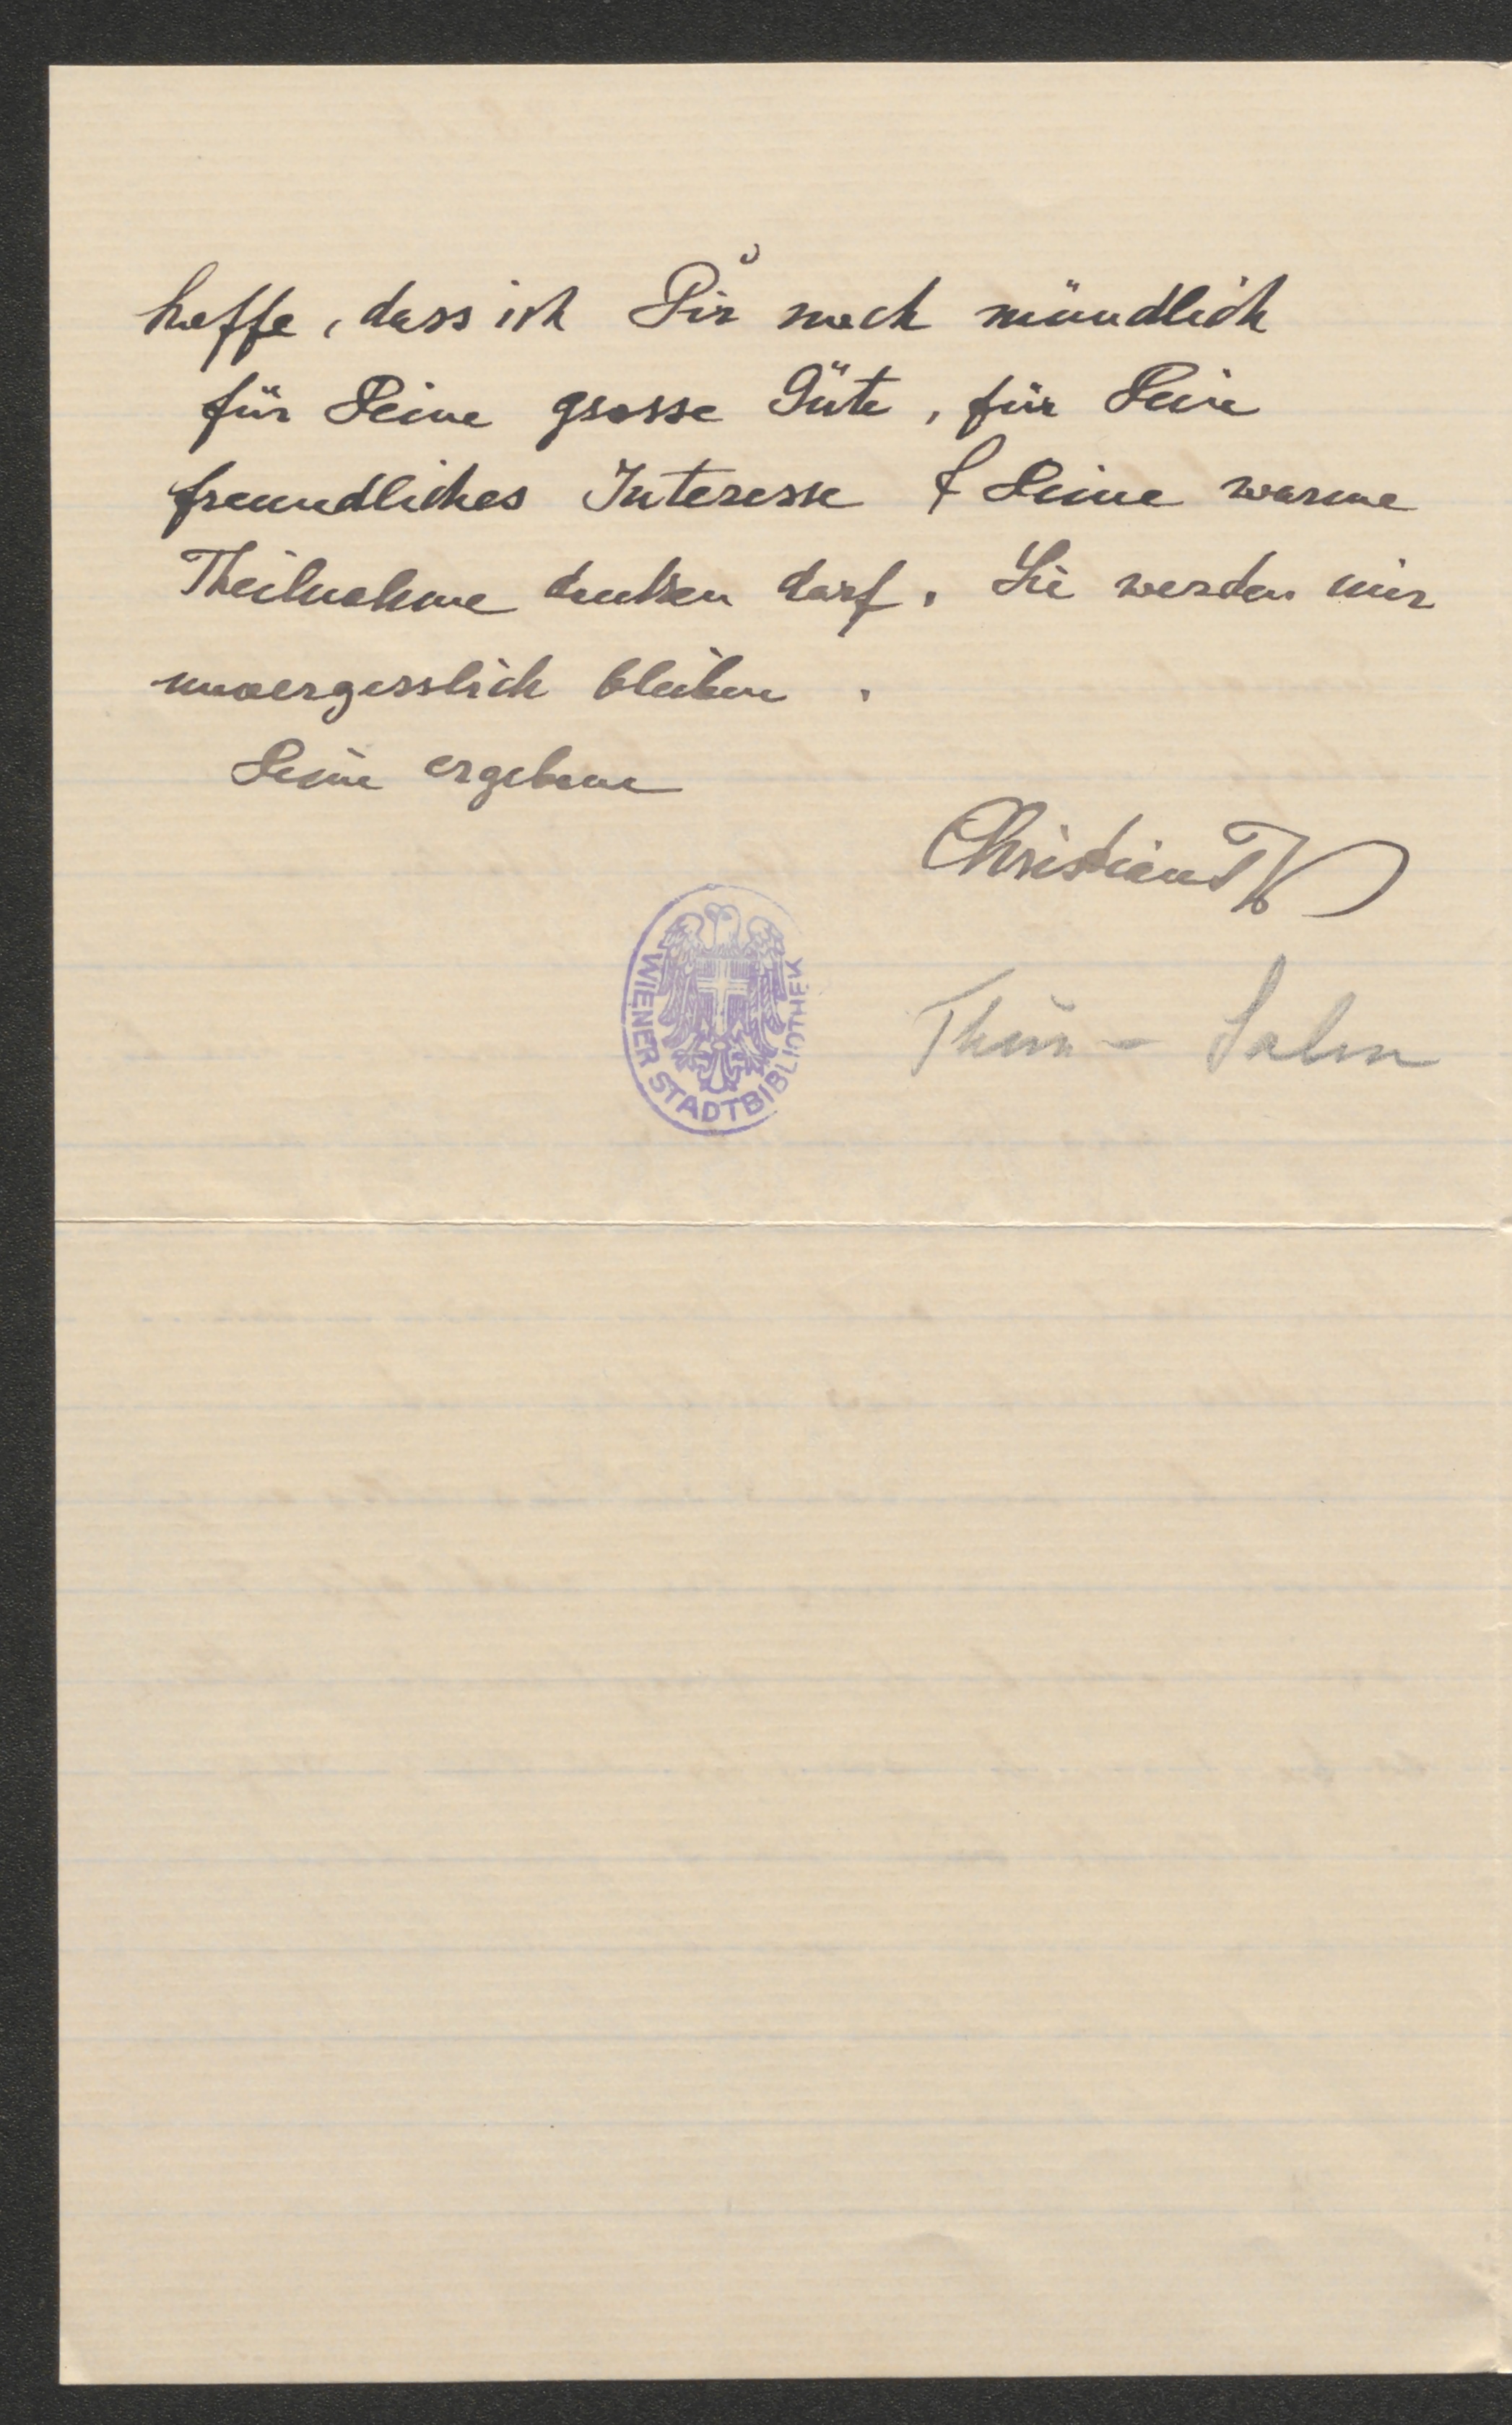 hoffe, dass ich Dir noch mündlich
für Deine grosse Güte, für Dein
freundliches Interesse & Deine warme
Theilnahme danken darf. Sie werden mir
unvergesslich bleiben.
Deine ergebene
Christiane
Thun-Salm
WIENER STADTBIBLIOTHEK